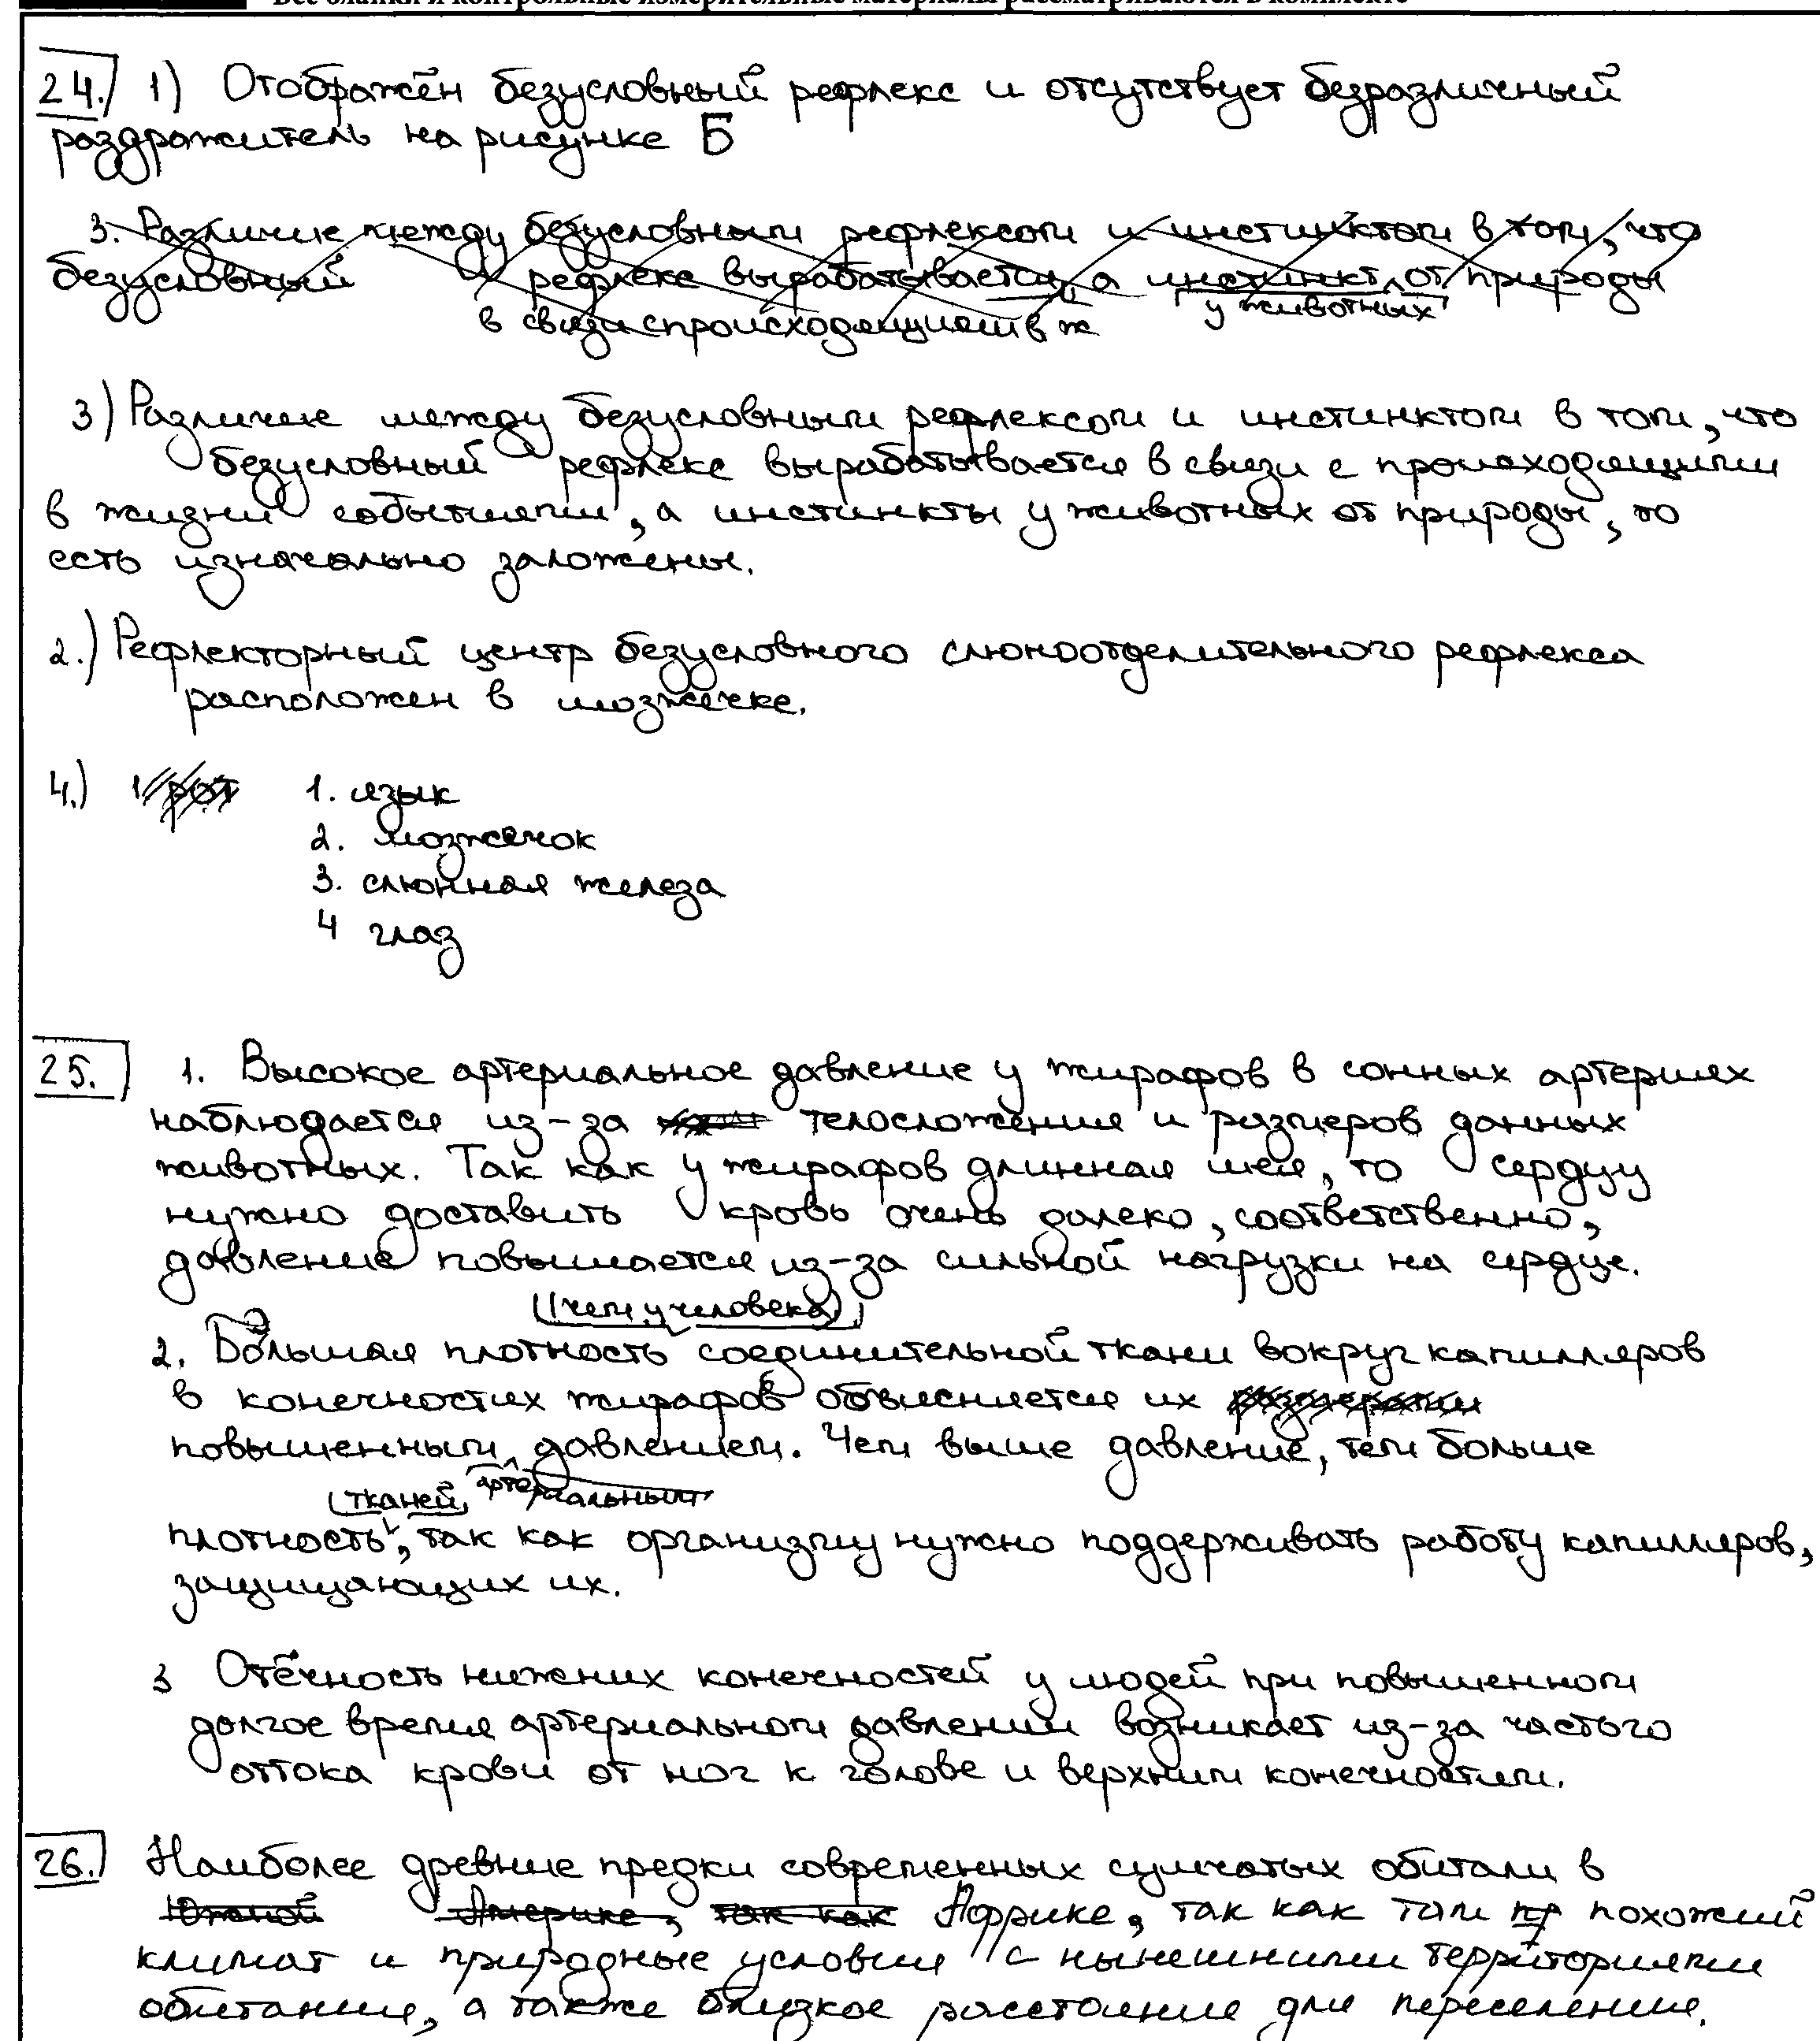 Все бланки и контрольные измерительные материалы рассматриваются в комплекте
24. 1) Отображён безусловный рефлекс и отсутствует безразличный
раздражитель на рисунке Б
3. Различие между безусловным рефлексом и инстинктом в том, что
безусловный рефлекс вырабатывается, а инстинкт от природы
в связи с происходящими в ж у животных
3) Различие между безусловным рефлексом и инстинктом в том, что
безусловный рефлекс вырабатывается в связи с происходящими
в жизни событиями, а инстинкты у животных от природы, то
есть изначально заложены.
2.) Рефлекторный центр безусловного слюноотделительного рефлекса
расположен в мозжечке.
4.) 1. рот 1. язык
2. мозжечок
3. слюнная железа
4 глаз
25. 1. Высокое артериальное давление у жирафов в сонных артериях
наблюдается из-за телосложения и размеров данных
животных. Так как у жирафов длинная шея, то сердцу
нужно доставить кровь очень далеко, соответственно,
давление повышается из-за сильной нагрузки на сердце.
(чем у человека)
2. Большая плотность соединительной ткани вокруг капилляров
в конечностях жирафов объясняется их размерами
повышенным давлением. Чем выше давление, тем больше
(тканей, артериальным
плотность, так как организму нужно поддерживать работу капилляров,
защищающих их.
3 Отёчность нижних конечностей у людей при повышенном
долгое время артериальном давлении возникает из-за частого
оттока крови от ног к голове и верхним конечностям.
26. Наиболее древние предки современных сумчатых обитали в
Южной Америке, так как Африке, так как там пр похожий
климат и природные условия с нынешними территориями
обитания, а также близкое расстояние для переселения.